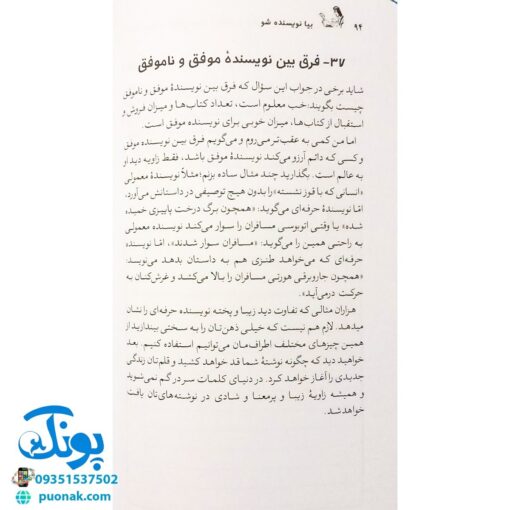 ۹۴ بیا نویسنده شو
۳۷- فرق بین نویسندهٔ موفق و ناموفق
شاید برخی در جواب این سؤال که فرق بین نویسندهٔ موفق و ناموفق
چیست بگویند: خب معلوم است، تعداد کتاب‌ها و میزان فروش و
استقبال از کتاب‌ها، میزان خوبی برای نویسنده موفق است.
اما من کمی به عقب‌تر می‌روم و می‌گویم فرق بین نویسنده موفق
و کسی که دائم آرزو می‌کند نویسندهٔ موفق باشد، فقط زاویه دید او
به عالم است. بگذارید چند مثال ساده بزنم؛ مثلاً نویسندهٔ معمولی
«انسانی که با قوز نشسته» را بدون هیچ توصیفی در داستانش می‌آورد،
امّا نویسندهٔ حرفه‌ای می‌گوید: «همچون برگ درخت پاییزی خمیده
شده» یا وقتی اتوبوسی مسافران را سوار می‌کند نویسنده معمولی
به راحتی همین را می‌گوید: «مسافران سوار شدند»، امّا نویسنده
حرفه‌ای که می‌خواهد طنزی هم به داستان بدهد می‌نویسد:
«همچون جاروبرقی هورتی مسافران را بالا می‌کشد و غرش‌کنان به
حرکت درمی‌آید».
هزاران مثالی که تفاوت دید زیبا و پخته نویسنده حرفه‌ای را نشان
میدهد. لازم هم نیست که خیلی ذهن‌تان را به سختی بیندازید از
همین چیزهای مختلف اطراف‌مان می‌توانیم استفاده کنیم. بعد
خواهید دید که چگونه نوشتهٔ شما قد خواهد کشید و قلم‌تان زندگی
جدیدی را آغاز خواهد کرد. در دنیای کلمات سر در گم نمی‌شوید
و همیشه زاویهٔ زیبا و پرمعنا و شادی در نوشته‌های‌تان یافت
خواهد شد.
پونک
09351537502
puonak.com